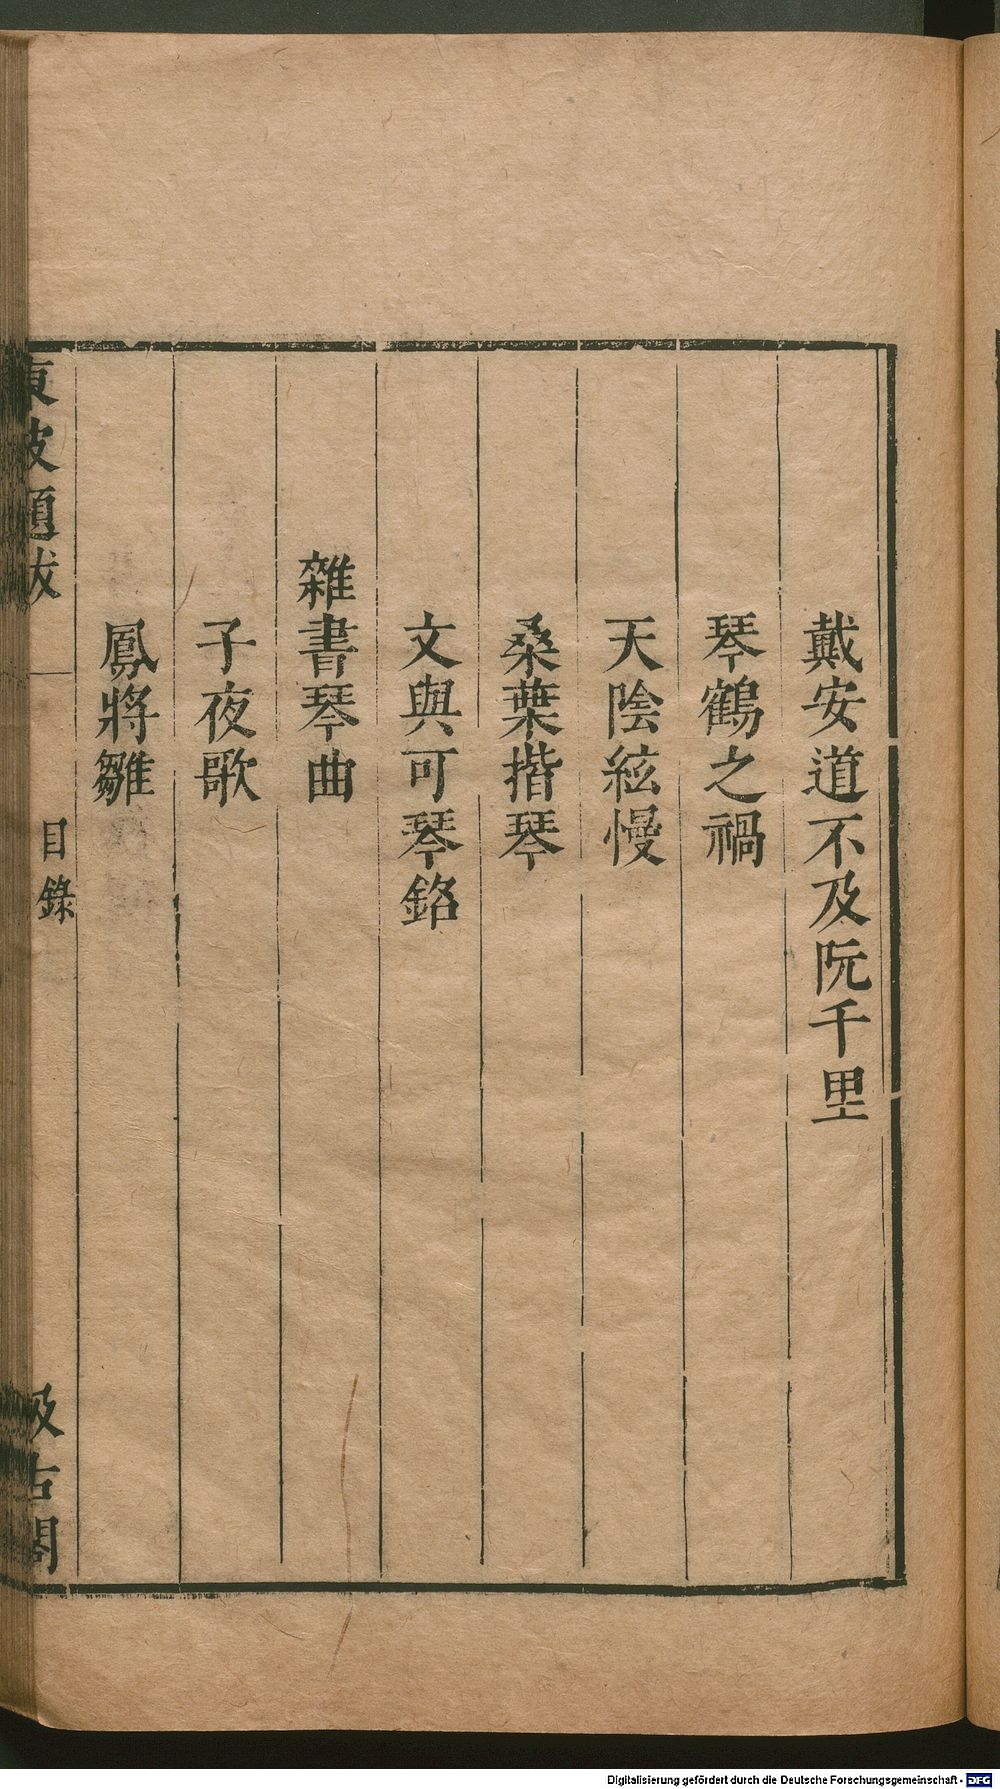 戴安道不及阮千里
琴鶴之禍
天陰絃慢
桑葉揩琴
文與可琴銘
雜書琴曲
子夜歌
鳳將雛
東坡題跋
目錄
汲古閣
Digitalisierung gefördert durch die Deutsche Forschungsgemeinschaft - DFG